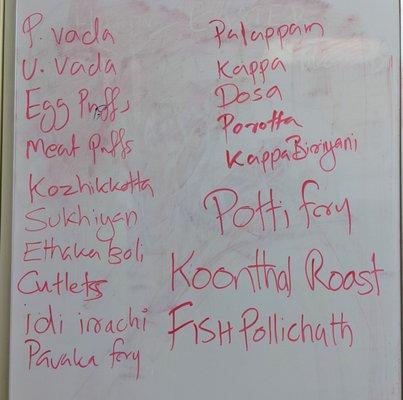 P. vada
U. Vada
Egg Puffs
Meat Puffs
Kozhikkotta
Sukhiyan
Ethaka boli
Cutlets
idi irachi
Pavaka fry
Palappam
Kappa
Dosa
Porotta
Kappa Biriyani
Potti fry
Koonthal Roast
FISH Pollichath